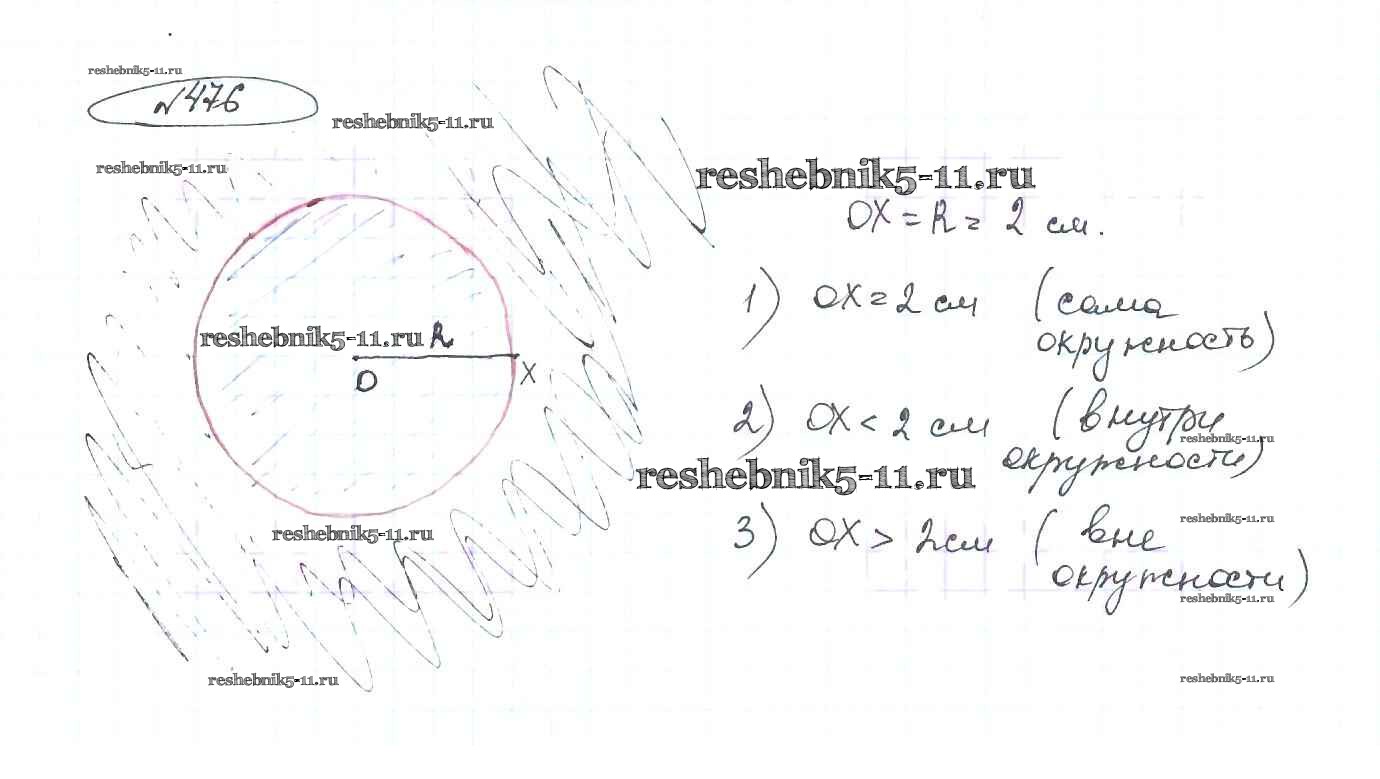 reshebnik5-11.ru
№476
reshebnik5-11.ru
reshebnik5-11.ru
reshebnik5-11.ru
OX = R = 2 см.
1) OX = 2 см (сама
окружность)
reshebnik5-11.ru R
O
X
2) OX < 2 см (внутри
reshebnik5-11.ru
окружности)
reshebnik5-11.ru
3) OX > 2 см (вне
reshebnik5-11.ru
reshebnik5-11.ru
окружности)
reshebnik5-11.ru
reshebnik5-11.ru
reshebnik5-11.ru